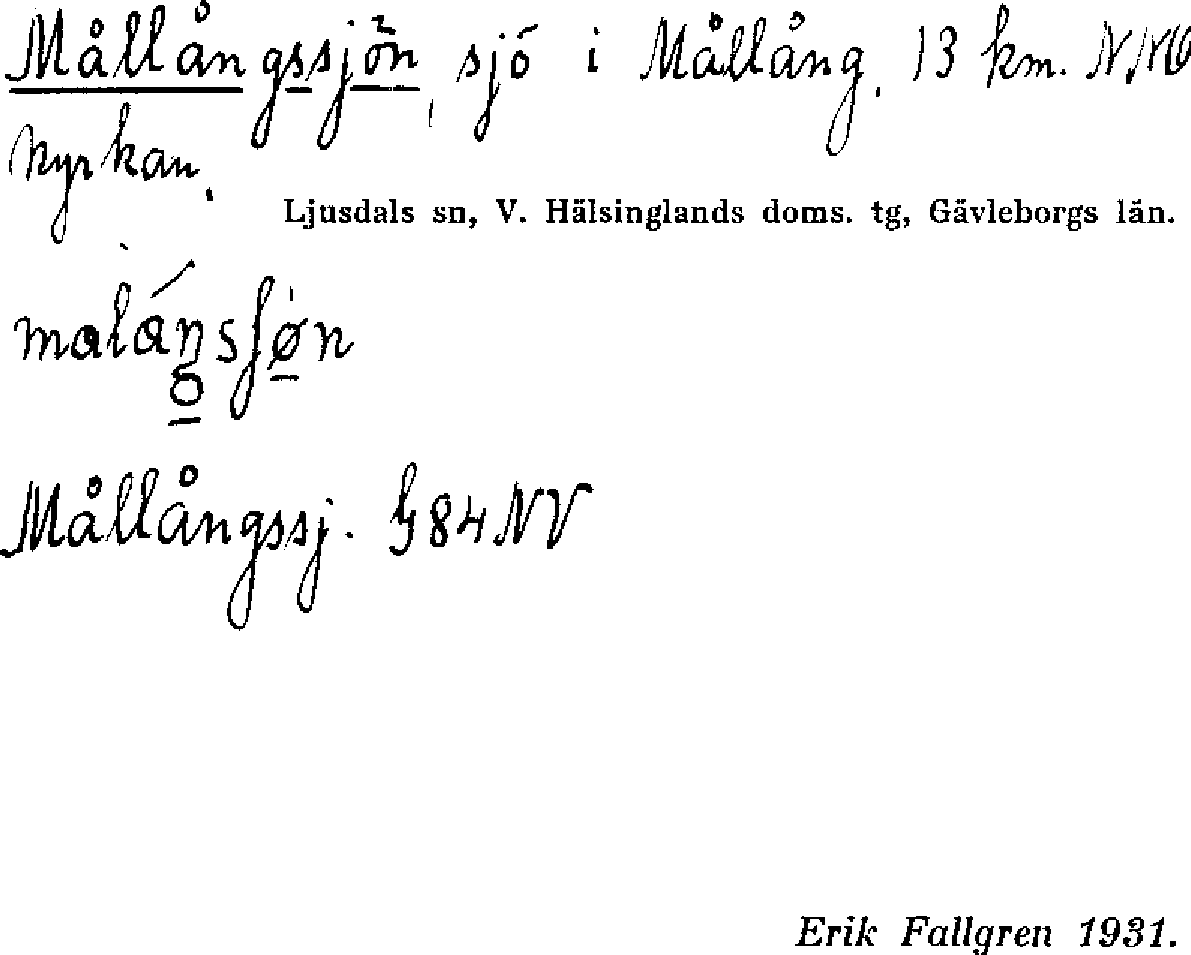 Mållångssjön, sjö i Mållång, 13 km. N.NO
kyrkan.
Ljusdals sn, V. Hälsinglands doms. tg, Gävleborgs län.
Mållångssj. G84NV
Erik Fallgren 1931.